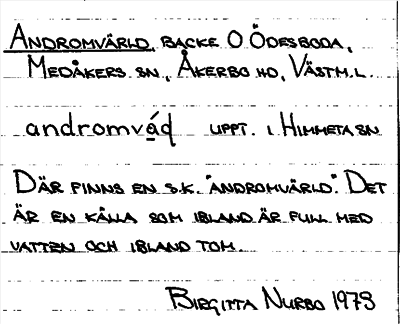 ANDROMVÄRLD, BACKE O ÖDESBODA,
MEDÅKERS SN, ÅKERBO HD, VÄSTM.L.
andromvá̱d UPPT. I HIMMETA SN
DÄR FINNS EN S.K. "ANDROMVÄRLD". DET
ÄR EN KÄLLA SOM IBLAND ÄR FULL MED
VATTEN OCH IBLAND TOM.
BIRGITTA NURBO 1978